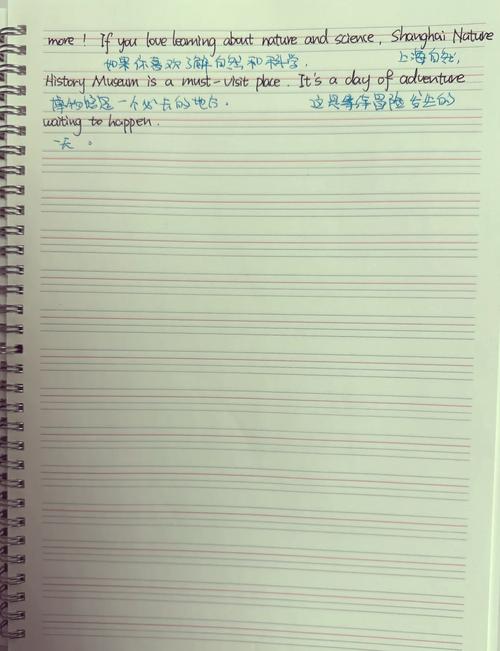 more! If you love learning about nature and science, Shanghai Nature
如果你喜欢了解自然和科学, 上海自然
History Museum is a must-visit place. It's a day of adventure
博物馆是一个必去的地点. 这是等待冒险发生的
waiting to happen.
一天。